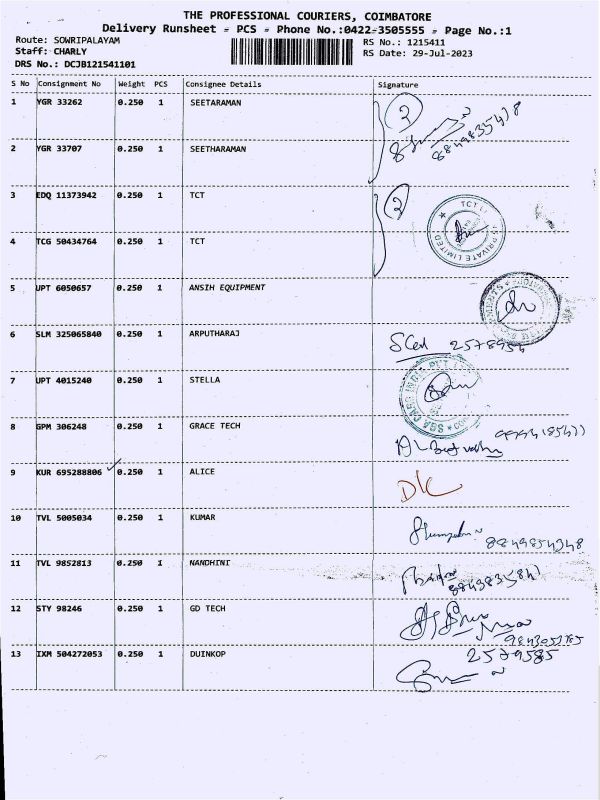 THE PROFESSIONAL COURIERS, COIMBATORE
Delivery Runsheet - PCS - Phone No.:0422-3505555 - Page No.:1
Route: SOWRIPALAYAM RS No.: 1215411
Staff: CHARLY RS Date: 29-Jul-2023
DRS No.: DCJB121541101
S No Consignment No Weight PCS Consignee Details Signature
1 YGR 33262 0.250 1 SEETARAMAN 2
2 YGR 33707 0.250 1 SEETHARAMAN
3 EDQ 11373942 0.250 1 TCT 2
TCT PRIVATE LIMITED
4 TCG 50434764 0.250 1 TCT
5 UPT 6050657 0.250 1 ANSIH EQUIPMENT
6 SLM 325065840 0.250 1 ARPUTHARAJ
7 UPT 4015240 0.250 1 STELLA
8 GPM 306248 0.250 1 GRACE TECH
9 KUR 695288806 0.250 1 ALICE
10 TVL 5005034 0.250 1 KUMAR
11 TVL 9852813 0.250 1 NANDHINI
12 STY 98246 0.250 1 GD TECH
13 IXM 504272053 0.250 1 DUINKOP 2579585